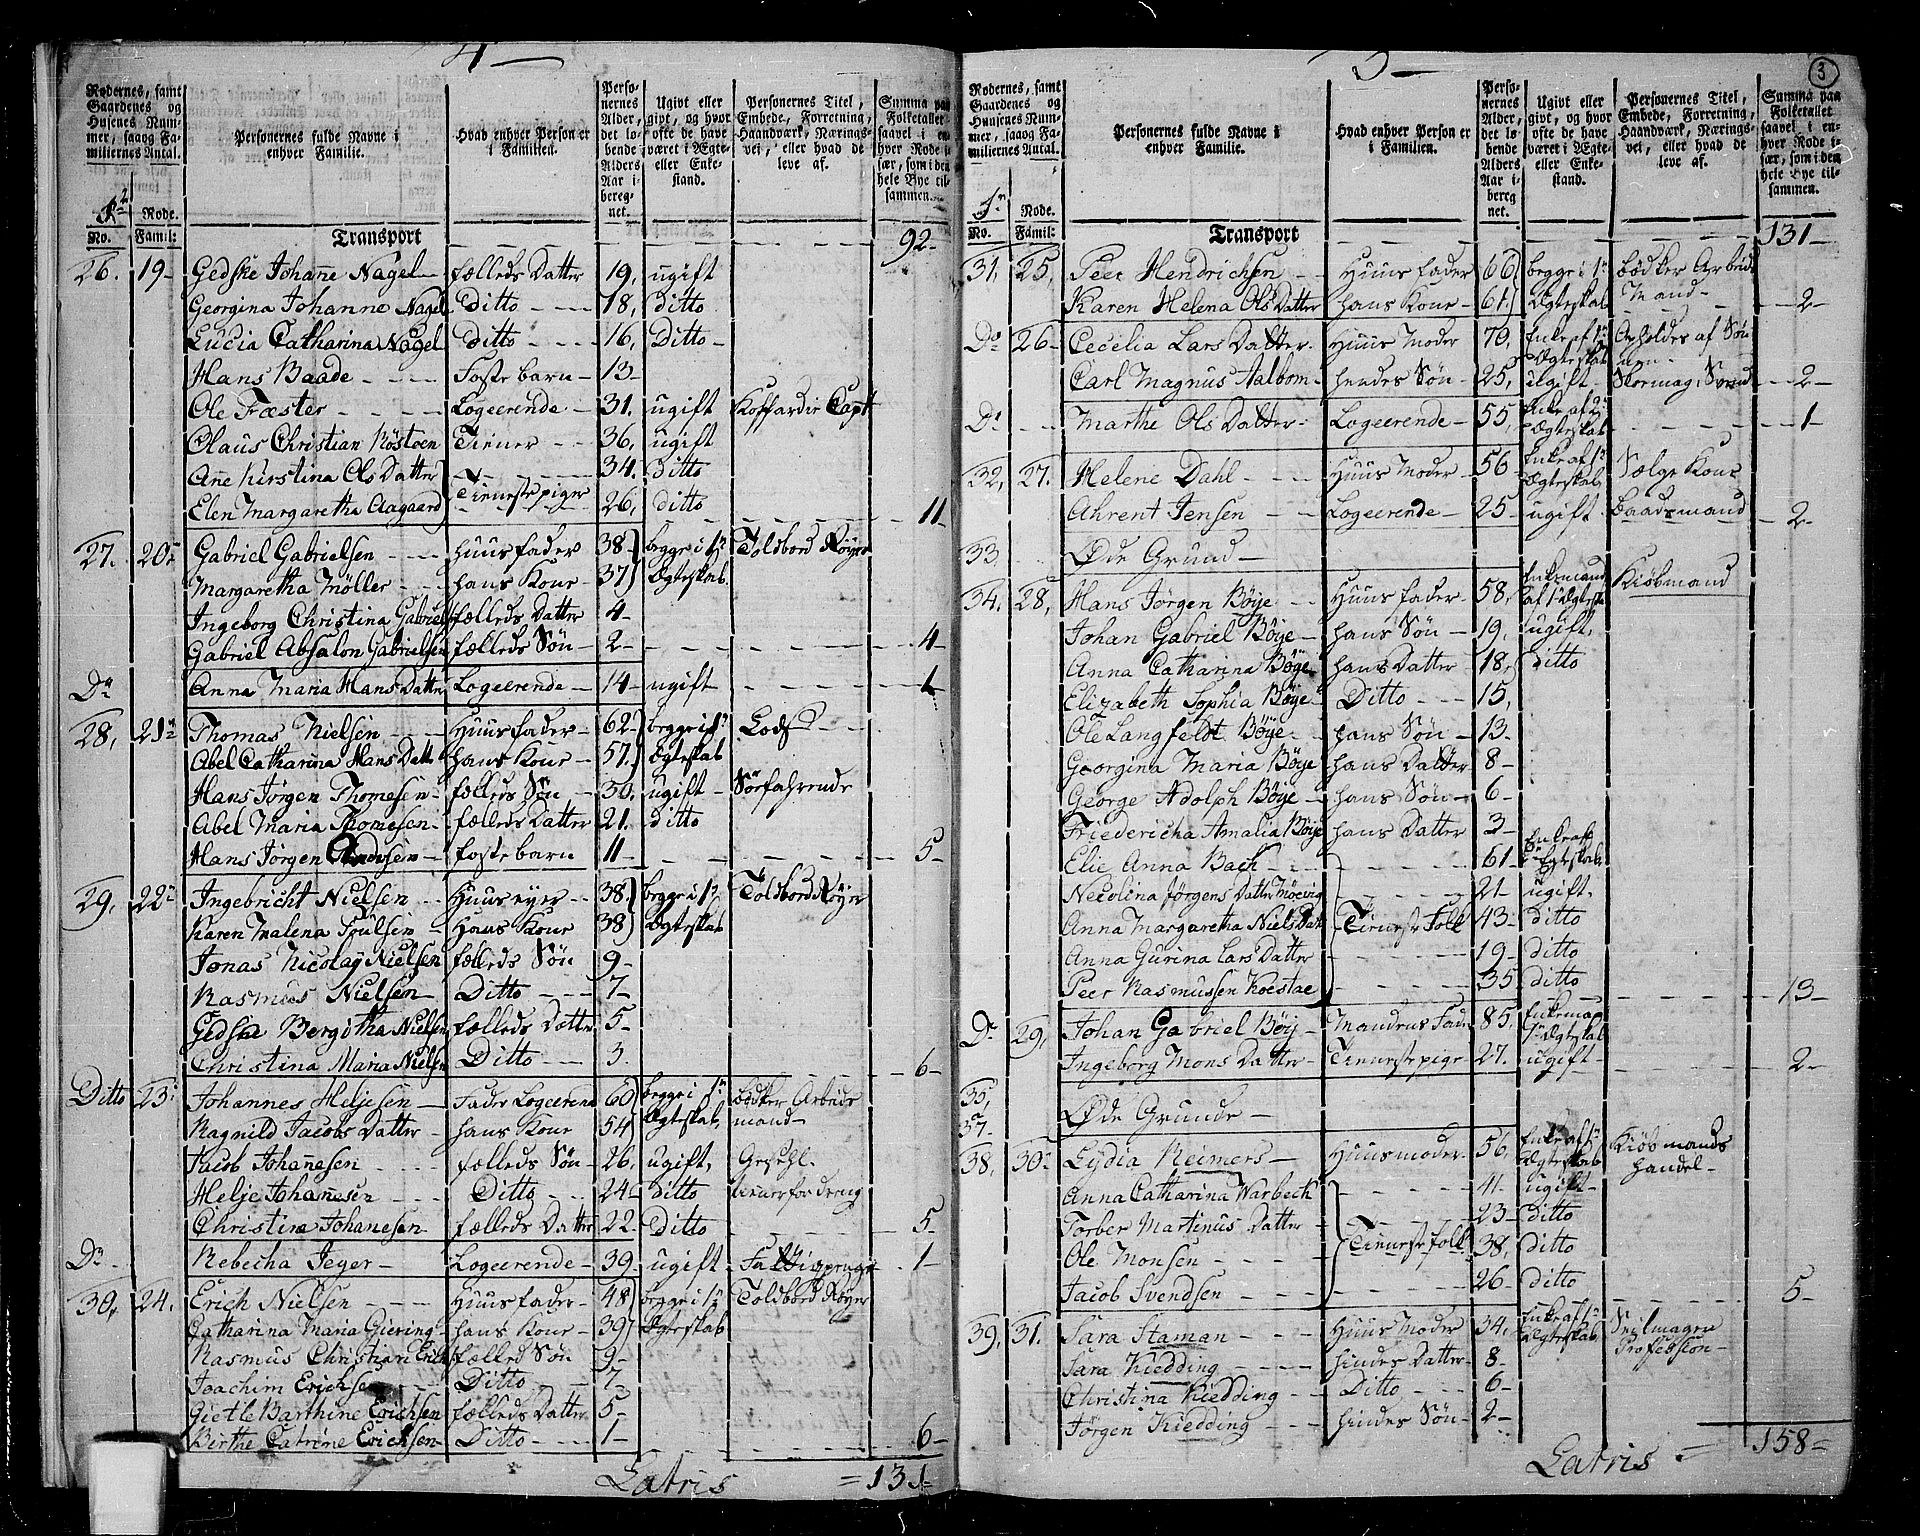 4
Rodernes, samt Gaardenes og Husenes Nummer, saaog Familiernes Antal.
Personernes fulde Navne i enhver Familie.
Hvad enhver Person er i Familien.
Personernes Alder, det løbende Alders Aar iberegnet.
Ugivt eller givt, og hvor ofte de have været i Ægte- eller Enkestand.
Personernes Titel, Embede, Forretning, Haandværk, Næringsvei, eller hvad de leve af.
Summa paa Folketallet saavel i enhver Rode især, som i den hele Bye tilsammen.
Rode.
No. Famil:
Transport 92-
26. 19- Gedske Johanne Nagel fælleds Datter 19, ugift
Georgina Johanne Nagel Ditto 18, ditto
Lucia Catharina Nagel Ditto 16, Ditto
Hans Baade Foste barn 13-
Ole Fæster Logeerende 31. ugift Koffardie Capt
Olaus Christian Röstoen Tiener 36, ugift
Ane Kirstina Ols Datter 34. ditto
Elen Margaretha Aagaard Tienestepiger 26, ditto 11-
27. 20- Gabriel Gabrielsen Huusfader 38- begge i 1n Toldbord Röyer
Margaretha Möller hans Kone 37 Ægteskab
Ingeborg Christina Gabriels fælleds Datter 4-
Gabriel Absalon Gabrielsen fælleds Sön 2- 4-
Do Anna Maria Hans Datter Logeerende 14- ugift 1-
28, 21- Thomas Nielsen Huusfader 62- begge i 1n Lods
Abel Catharina Hans Datt hans Kone 57. Ægteskab
Hans Jörgen Thomesen fælleds Sön 30. ugift Söefahrende
Abel Maria Thomesen fælleds Datter 21. ditto
Hans Jörgen foste barn 11- 5-
29, 22- Ingebricht Nielsen Huuseyer 38. begge i 1n Toldbord Röyer
Karen Malena Poulsen Hans Kone 38 Ægteskab
Jonas Nicolay Nielsen fælleds Sön 9-
Rasmus Nielsen Ditto 7-
Gedske Bergitha Nielsen fælleds Datter 5-
Christina Maria Nielsen Ditto 3. 6-
Ditto 23- Johannes Heljesen Fader Logeerend 60 begge i 1n bödker Arbeids
Ragnild Jacobs Datter hans Kone 54 Ægteskab, mand
Jacob Johanesen fælleds Sön 26, ugift,
Helje Johannesen Ditto 24- ditto
Christina Johanesen fælleds Datter 22- Ditto 5-
Do Rebecha Jeger Logeerende 39- ugift 1-
30, 24. Erich Nielsen Huusfader 48 begge i 1n Toldbord Röyer
Catharina Maria Giering hans Kone 39 Ægteskab
Rasmus Christian Erich fælled Sön 9-
Joachim Erichsen Ditto 7-
Gietle Barthine Erichsen fælleds Datter 5-
Birthe Catrine Erichsen Ditto 1- 6-
Latris =131-
3
Rodernes, samt Gaardenes og Husenes Nummer, saaog Familiernes Antal.
Personernes fulde Navne i enhver Familie.
Hvad enhver Person er i Familien.
Personernes Alder, det løbende Alders Aar iberegnet.
Ugivt eller givt, og hvor ofte de have været i Ægte- eller Enkestand.
Personernes Titel, Embede, Forretning, Haandværk, Næringsvei, eller hvad de leve af.
Summa paa Folketallet saavel i enhver Rode især, som i den hele Bye tilsammen.
Rode.
No. Famil:
Transport 131-
31, 25, Peer Hendrichsen Huus fader 66 begge i 1n bödker Arbeids
Karen Helena Ols Datter hans Kone 61. Ægteskab Mand 2-
Do 26- Cecelia Lars Datter Huus Moder 70, Enke af 1n Ægteskab Opholdes af Sönnen
Carl Magnus Aalbom hendes Sön 25, ugift Skormag: Svend 2-
Do Marthe Ols Datter Logeerende 55, Enke af 2 Ægteskab 1-
32, 27. Helene Dahl Huus Moder 56 Enke af 1n Ægteskab Sælge Kone
Ahrent Jensen Logeerende 25- ugift baadsmand 2-
33. Øde Grund
34. 28, Hans Jörgen Böye Huus fader 58, Enkemand af 1n Ægteska Kiöbmand
Johan Gabriel Böye hans Sön 19, ugift,
Anna Catharina Böye hans Datter 18, ditto
Elizabeth Sophia Böye Ditto 15,
Ole Langfeldt Böye hans Sön 13.
Georgina Maria Böye hans Datter 8-
George Adolph Böye hans Sön 6-
Friedericha Amalia Böye hans Datter 3-
Elie Anna Bach 61 Enke af 1n Ægteskab
Necolina Jörgens Datter 21- ugift.
Anna Margaretha Niels Dat Tieneste Folk 43- ditto
Anna Gurina Lars Datter 19- ditto
Peer Rasmussen Koestae 35 ditto 13-
Do 29, Johan Gabriel Böy Mandens Fader 85, Enkeman 1n Ægteskab
Ingeborg Mons Datter Tienestepige 27. ugift 2-
35, a 37. Øde Grunde
38, 30- Lydia Reimers Huusmoder 56, Enke af 1n Ægteskab Kiöbmands handel
Anna Catharina Warbeck 41- ugift
Torber Martinus Datter 23- ditto
Ole Monsen Tienestefolk 38, ditto
Jacob Svendsen 26- ditto 5-
39, 31. Sara Staman Huus Moder 34, Enke af 1n Ægteskab Seilmager Profession
Sara Kiedding hindes Datter 8-
Christina Kiedding Ditto 6-
Jörgen Kiedding hindes Sön 2-
Latris = 158=